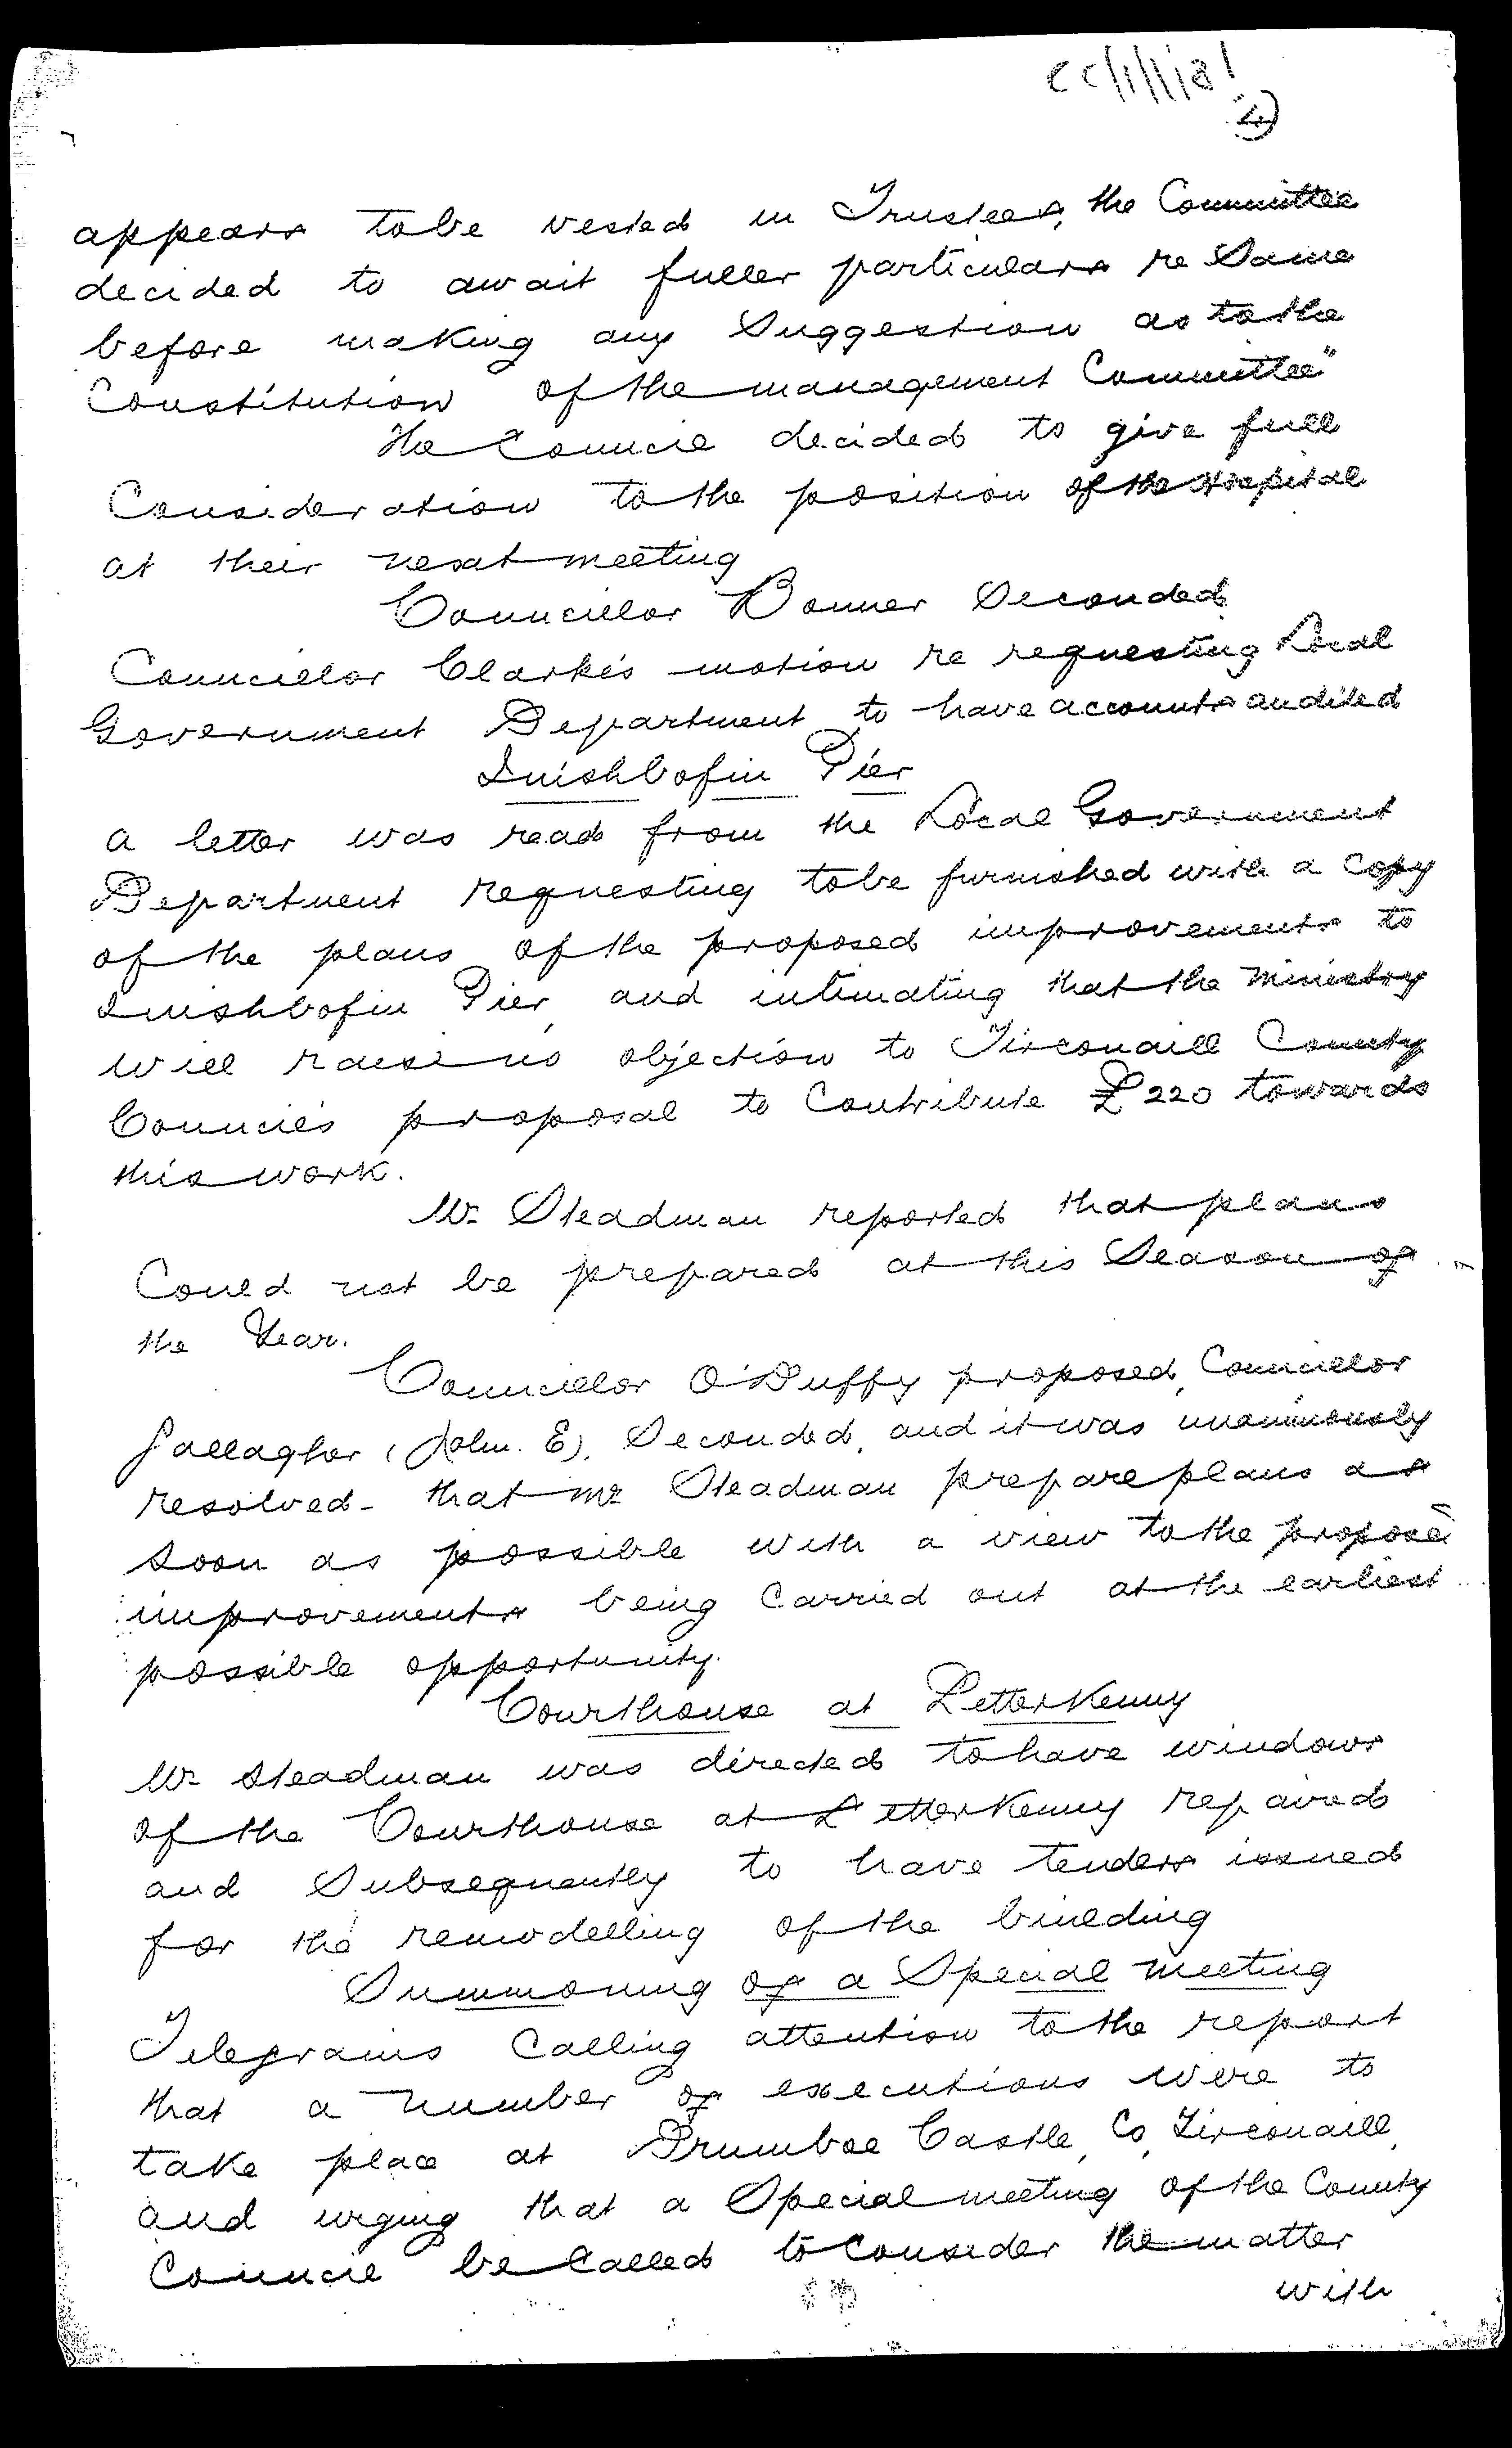 cc/1/1/181
4)
appears to be vested in Trustees, the Committee
decided to await fuller particulars re Same
before making any Suggestion as to the
Constitution of the management Committee"
The Council decided to give full
Consideration to the position of the Hospital
at their next meeting
Councillor Bonner Seconded
Councillor Clarke's motion re requesting Local
Government Department to have accounts audited
Inishbofin Pier
a letter was read from the Local Government
Department requesting to be furnished with a copy
of the plans of the proposed improvements to
Inishbofin Pier, and intimating that the Ministry
will raise no objection to Tirconaill County
Council's proposal to Contribute £220 towards
this work.
Mr Steadman reported that plans
Could not be prepared at this Season of
the Year.
Councillor O'Duffy proposed, Councillor
Gallagher (John. E), Seconded, and it was unanimously
resolved - that Mr Steadman prepare plans as
soon as possible with a view to the propose
improvements being Carried out at the earliest
possible opportunity.
Courthouse at Letterkenny
Mr Steadman was directed to have windows
of the Courthouse at Letterkenny repaired
and Subsequently to have tenders issued
for the remodelling of the building
Summoning of a Special meeting
Telegrams Calling attention to the report
that a number of executions were to
take place at Drumboe Castle, Co, Tirconaill,
and urging that a Special meeting of the County
Council be Called to Consider the matter
with